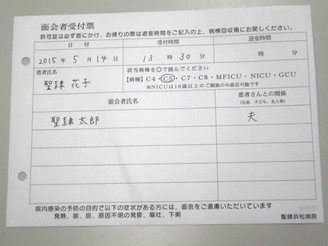 面会者受付票
許可証は必ず首にかけ、お帰りの際は退室時間をご記入の上、病棟受付箱にお戻しください。
日 付 受付時間 退室時間
2015年 5月 14日 13時 30分 時 分
患者氏名 該当病棟を〇で囲んでください
聖隷 花子 【病棟】C4・C6・C7・C8・MFICU・NICU・GCU
※NICUは18歳以上のご親族のみ面会可能です
面会者氏名 患者さんとの関係
(兄弟、子ども、友人等)
聖隷 太郎 夫
院内感染の予防の目的で以下の症状がある方には、面会をご遠慮いただいています
発熱、咳、痰、原因不明の発疹、嘔吐、下痢
聖隷浜松病院